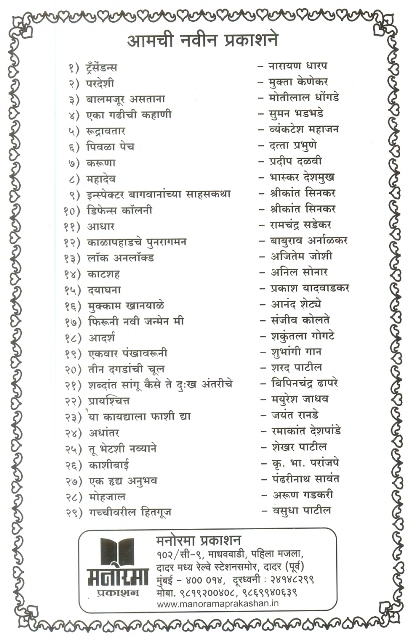 आमची नवीन प्रकाशने
१) ट्रॅंसेंडन्स - नारायण धारप
२) परदेशी - मुक्ता केणेकर
३) बालमजूर असताना - मोतीलाल धोंगडे
४) एका गढीची कहाणी - सुमन भडभडे
५) रूद्रावतार - व्यंकटेश महाजन
६) पिवळा पेच - दत्ता प्रभुणे
७) करूणा - प्रदीप दळवी
८) महादेव - भास्कर देशमुख
९) इन्स्पेक्टर बागवानांच्या साहसकथा - श्रीकांत सिनकर
१०) डिफेन्स कॉलनी - श्रीकांत सिनकर
११) आधार - रामचंद्र सडेकर
१२) काळापहाडचे पुनरागमन - बाबुराव अर्नाळकर
१३) लॉक अनलॉक्ड - अजितेम जोशी
१४) काटशह - अनिल सोनार
१५) दयाघना - प्रकाश यादवाडकर
१६) मुक्काम खानयाळे - आनंद शेट्ये
१७) फिरूनी नवी जन्मेन मी - संजीव कोलते
१८) आदर्श - शकुंतला गोगटे
१९) एकवार पंखावरूनी - शुभांगी गान
२०) तीन दगडांची चूल - शरद पाटील
२१) शब्दांत सांगू कैसे ते दुःख अंतरीचे - बिपिनचंद्र ढापरे
२२) प्रायश्चित्त - मयुरेश जाधव
२३) या कायद्याला फाशी द्या - जयंत रानडे
२४) अधांतर - रमाकांत देशपांडे
२५) तू भेटशी नव्याने - शेखर पाटील
२६) काशीबाई - कृ. भा. परांजपे
२७) एक हृद्य अनुभव - पंढरीनाथ सावंत
२८) मोहजाल - अरूण गडकरी
२९) गच्चीवरील हितगूज - वसुधा पाटील
मनोरमा
प्रकाशन
मनोरमा प्रकाशन
१०२/सी-९, माधववाडी, पहिला मजला,
दादर मध्य रेल्वे स्टेशनसमोर, दादर (पूर्व)
मुंबई - ४०० ०१४, दूरध्वनी : २४१४८२९९
मोबा. ९८१९२००४०८, ९८६९९४०६३९
www.manoramaprakashan.in